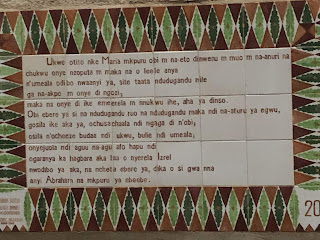 Ukwe otito nke Maria mkpuru obi m na-eto dinwenu m muo m na-anuri na
chukwu onye nzoputa m maka na o leele anya
n'umeala odibo nwaanyi ya, site taata ndudugandu nile
ga na-akpo m onye di ngozi,
maka na onye di ike emeerela m nnukwu ihe, aha ya dinso.
Obi ebere ya si na ndudugandu ruo na ndudugandu maka ndi na-aturu ya egwu,
gosila ike aka ya, ochusachaala ndi nganga di n'obi,
osila n'ocheeze budaa ndi ukwu, bulie ndi umeala,
onyenjuola ndi aguu na-agu afo hapu ndi
ogaranya ka hagbara aka laa o nyerela Izrel
nwodibo ya aka, na ncheta ebere ya, dika o si gwa nna
anyi Abraham na mkpuru ya ebeebe.
20